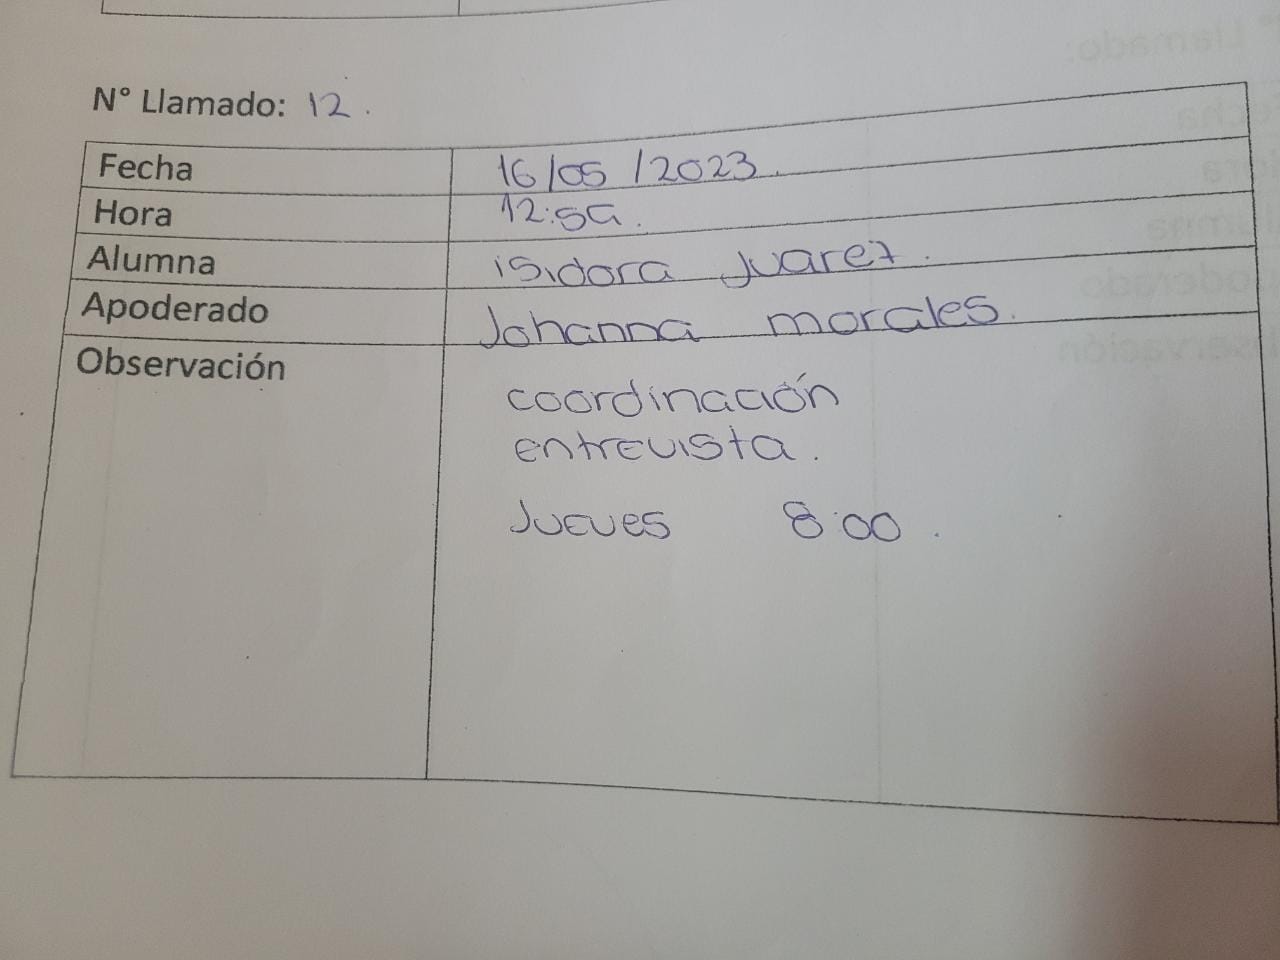 N° Llamado: 12.
Fecha 16/05/2023.
Hora 12:59.
Alumna isidora Juarez.
Apoderado Johanna morales.
Observación
coordinación
entrevista.
Jueves 8:00.